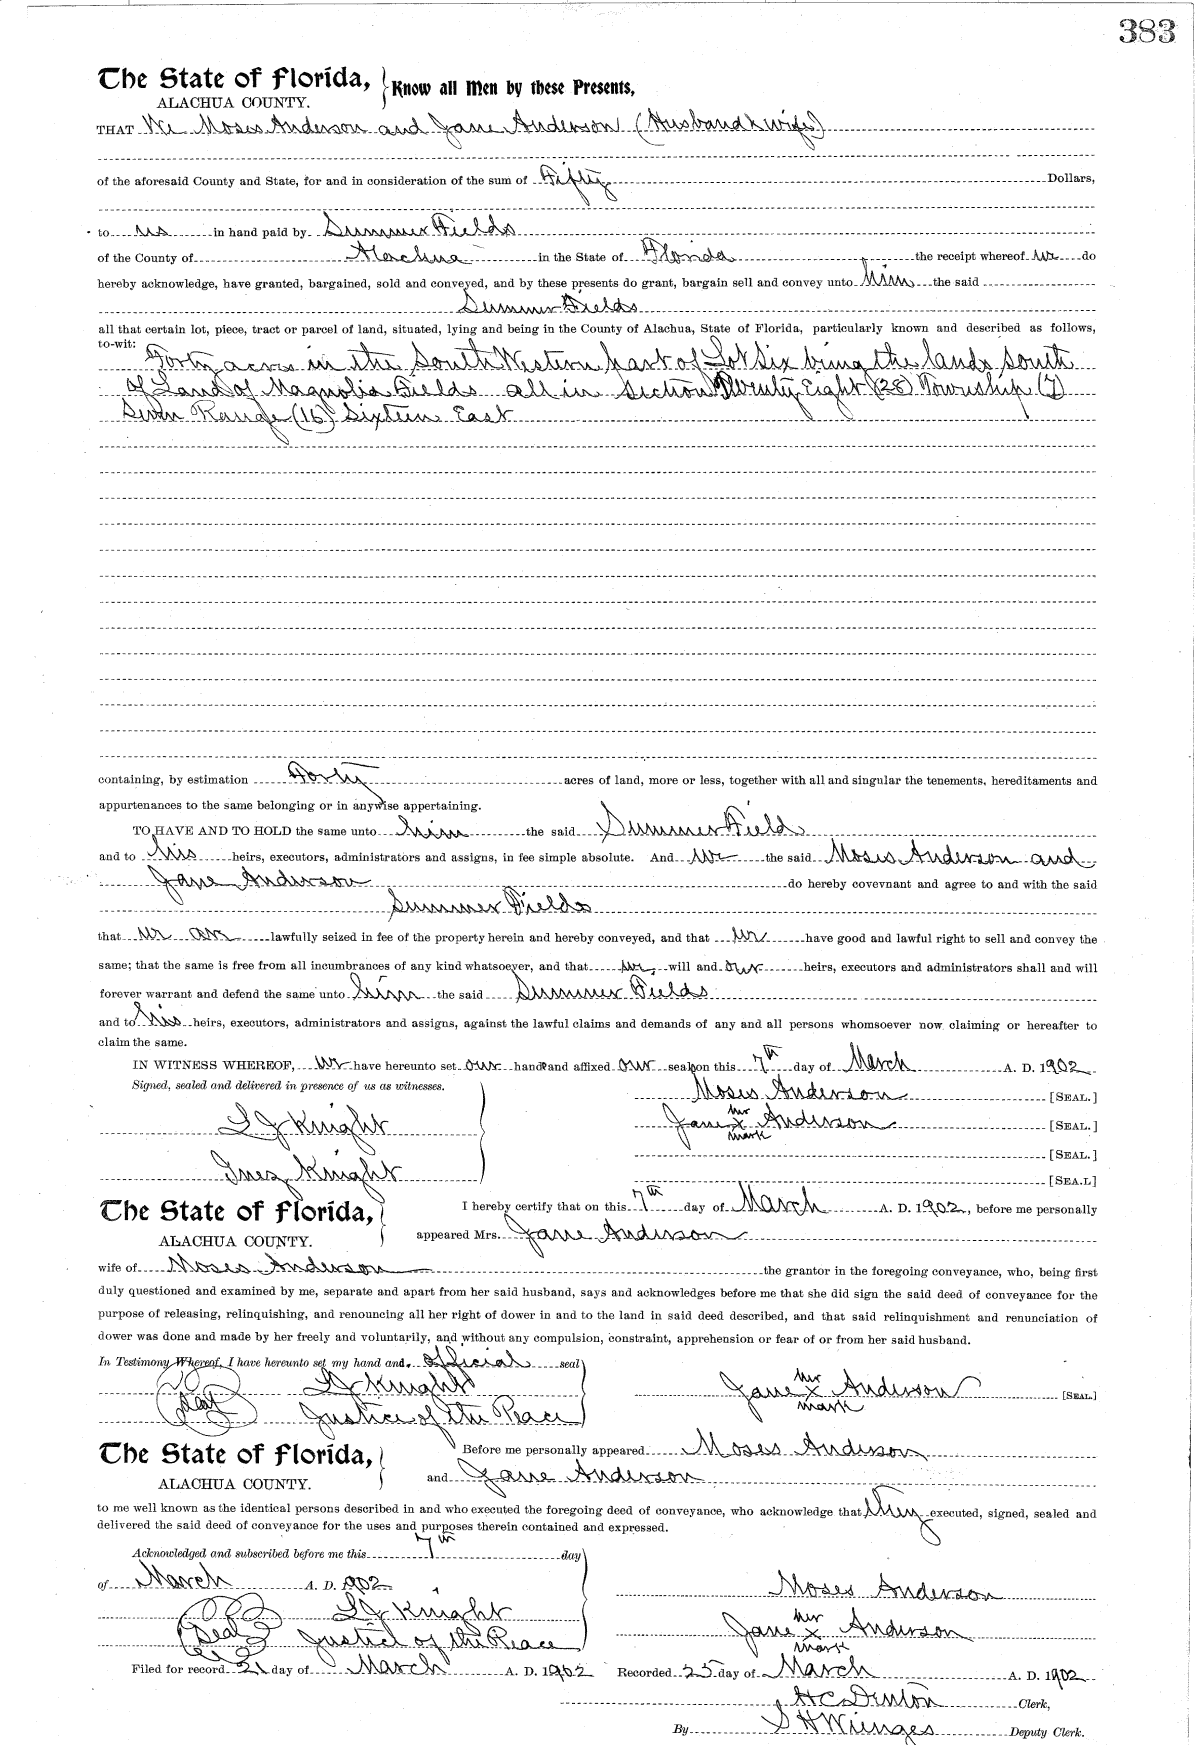 383
The State of Florida, Know all Men by these Presents,
ALACHUA COUNTY.
THAT We Moses Anderson and Jane Anderson (Husband & wife)
of the aforesaid County and State, for and in consideration of the sum of Fifty Dollars,
to us in hand paid by Summer Fields
of the County of Alachua in the State of Florida the receipt whereof we do
hereby acknowledge, have granted, bargained, sold and conveyed, and by these presents do grant, bargain sell and convey unto him the said
Summer Fields
all that certain lot, piece, tract or parcel of land, situated, lying and being in the County of Alachua, State of Florida, particularly known and described as follows,
to-wit:
Forty acres in the South Western part of Lot Six being the lands South
of Land of Magnolia Fields all in Section Twenty Eight (28) Township (7)
Seven Range (16) Sixteen East
containing, by estimation Forty acres of land, more or less, together with all and singular the tenements, hereditaments and
appurtenances to the same belonging or in anywise appertaining.
TO HAVE AND TO HOLD the same unto him the said Summer Field
and to his heirs, executors, administrators and assigns, in fee simple absolute. And we the said Moses Anderson and
Jane Anderson do hereby covevnant and agree to and with the said
Summer Fields
that we are lawfully seized in fee of the property herein and hereby conveyed, and that we have good and lawful right to sell and convey the
same; that the same is free from all incumbrances of any kind whatsoever, and that we will and our heirs, executors and administrators shall and will
forever warrant and defend the same unto him the said Summer Fields
and to his heirs, executors, administrators and assigns, against the lawful claims and demands of any and all persons whomsoever now claiming or hereafter to
claim the same.
IN WITNESS WHEREOF, we have hereunto set our hands and affixed our seals on this 7th day of March A. D. 1902
Signed, sealed and delivered in presence of us as witnesses.
Moses Anderson [SEAL.]
her
L J Knight Jane x Anderson [SEAL.]
mark
[SEAL.]
Inez Knight
[SEA.L]
The State of Florida, I hereby certify that on this 7th day of March A. D. 1902, before me personally
ALACHUA COUNTY. appeared Mrs. Jane Anderson
wife of Moses Anderson the grantor in the foregoing conveyance, who, being first
duly questioned and examined by me, separate and apart from her said husband, says and acknowledges before me that she did sign the said deed of conveyance for the
purpose of releasing, relinquishing, and renouncing all her right of dower in and to the land in said deed described, and that said relinquishment and renunciation of
dower was done and made by her freely and voluntarily, and without any compulsion, constraint, apprehension or fear of or from her said husband.
In Testimony Whereof, I have hereunto set my hand and official seal
her
L J Knight Jane x Anderson [SEAL.]
mark
Seal Justice of the Peace
The State of Florida, Before me personally appeared Moses Anderson
ALACHUA COUNTY. and Jane Anderson
to me well known as the identical persons described in and who executed the foregoing deed of conveyance, who acknowledge that they executed, signed, sealed and
delivered the said deed of conveyance for the uses and purposes therein contained and expressed.
Acknowledged and subscribed before me this 7th day
of March A. D. 1902 Moses Anderson
L J Knight her
Seal Jane x Anderson
Justice of the Peace mark
Filed for record 21 day of March A. D. 1902 Recorded 25 day of March A. D. 1902
H C Denton Clerk,
By S H Wienges Deputy Clerk.